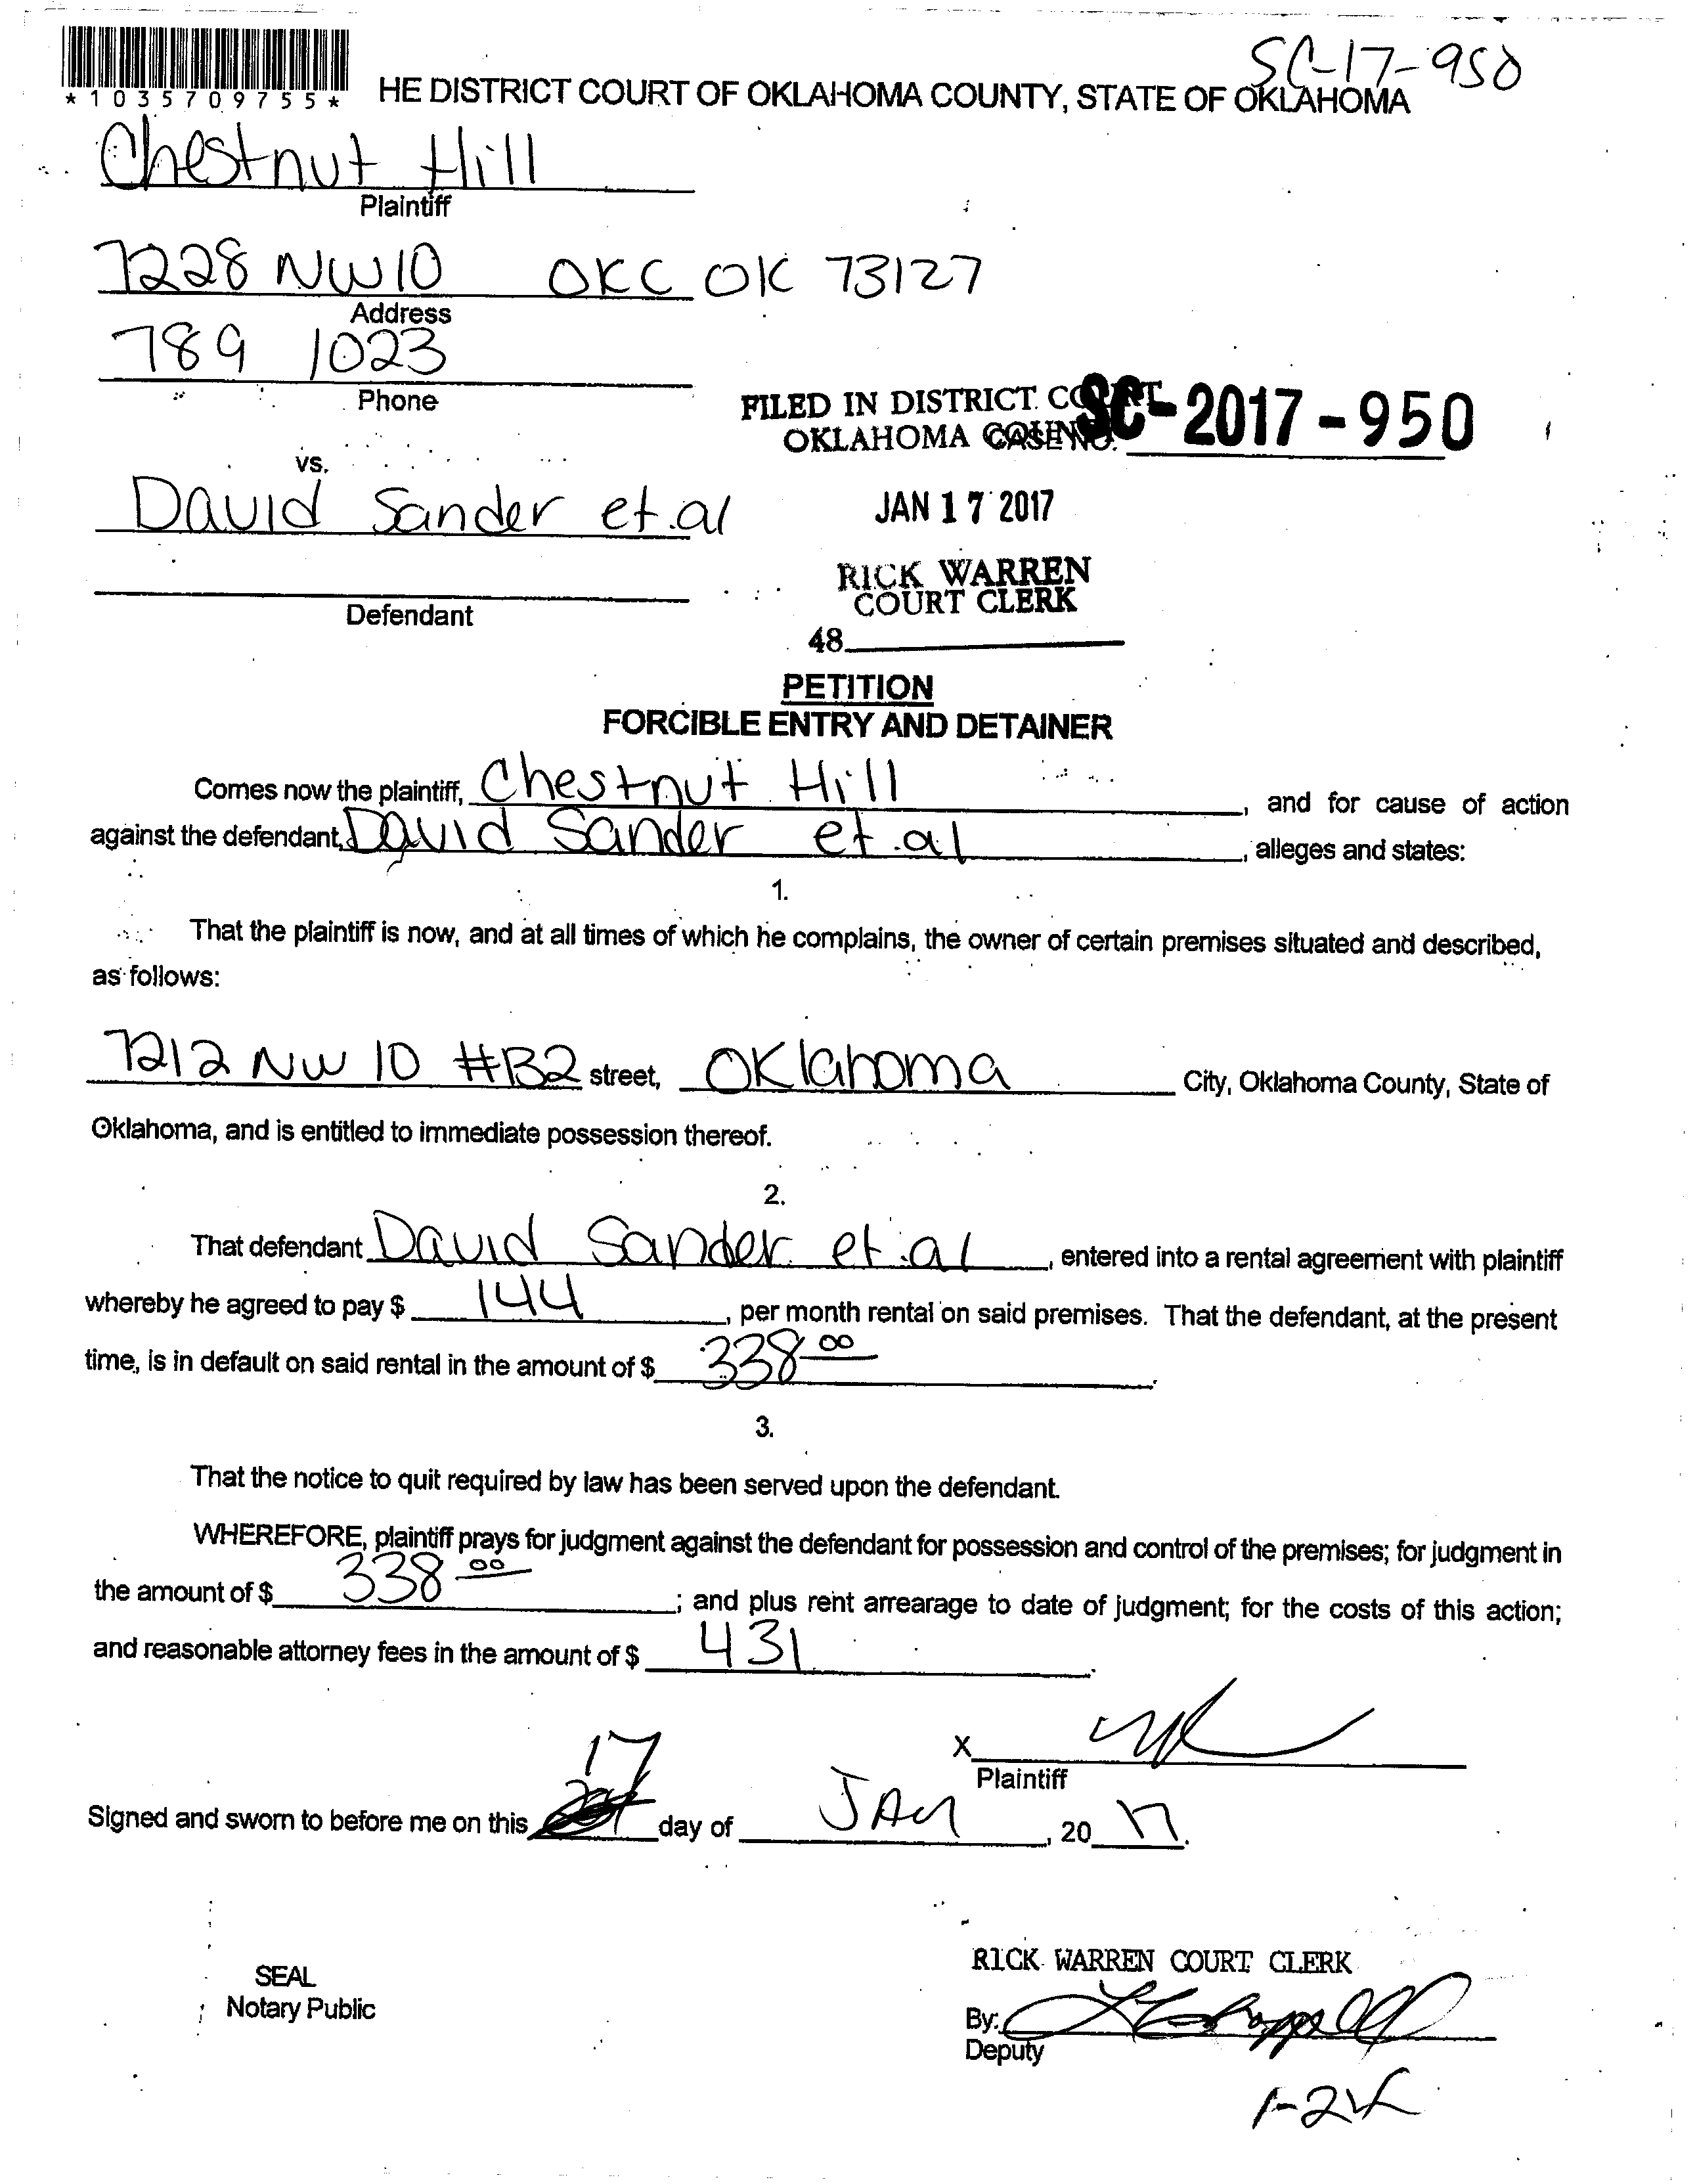 SC-17-950
*1035709755*
HE DISTRICT COURT OF OKLAHOMA COUNTY, STATE OF OKLAHOMA
Chestnut Hill
Plaintiff
7228 NW 10 OKC OK 73127
Address
789 1023
Phone
FILED IN DISTRICT COURT
OKLAHOMA COUNTY
CASE NO. SC-2017-950
vs.
David Sander et.al
JAN 17 2017
RICK WARREN
COURT CLERK
Defendant
48
PETITION
FORCIBLE ENTRY AND DETAINER
Comes now the plaintiff, Chestnut Hill, and for cause of action
against the defendant, David Sander et.al, alleges and states:
1.
That the plaintiff is now, and at all times of which he complains, the owner of certain premises situated and described,
as follows:
7212 NW 10 #B2 street, Oklahoma City, Oklahoma County, State of
Oklahoma, and is entitled to immediate possession thereof.
2.
That defendant David Sander et.al, entered into a rental agreement with plaintiff
whereby he agreed to pay $ 144, per month rental on said premises. That the defendant, at the present
time, is in default on said rental in the amount of $ 338 00.
3.
That the notice to quit required by law has been served upon the defendant.
WHEREFORE, plaintiff prays for judgment against the defendant for possession and control of the premises; for judgment in
the amount of $ 338 00; and plus rent arrearage to date of judgment; for the costs of this action;
and reasonable attorney fees in the amount of $ 431.
X
Plaintiff
Signed and sworn to before me on this 17 day of JAN, 20 17.
RICK WARREN COURT CLERK
SEAL
Notary Public
By:
Deputy